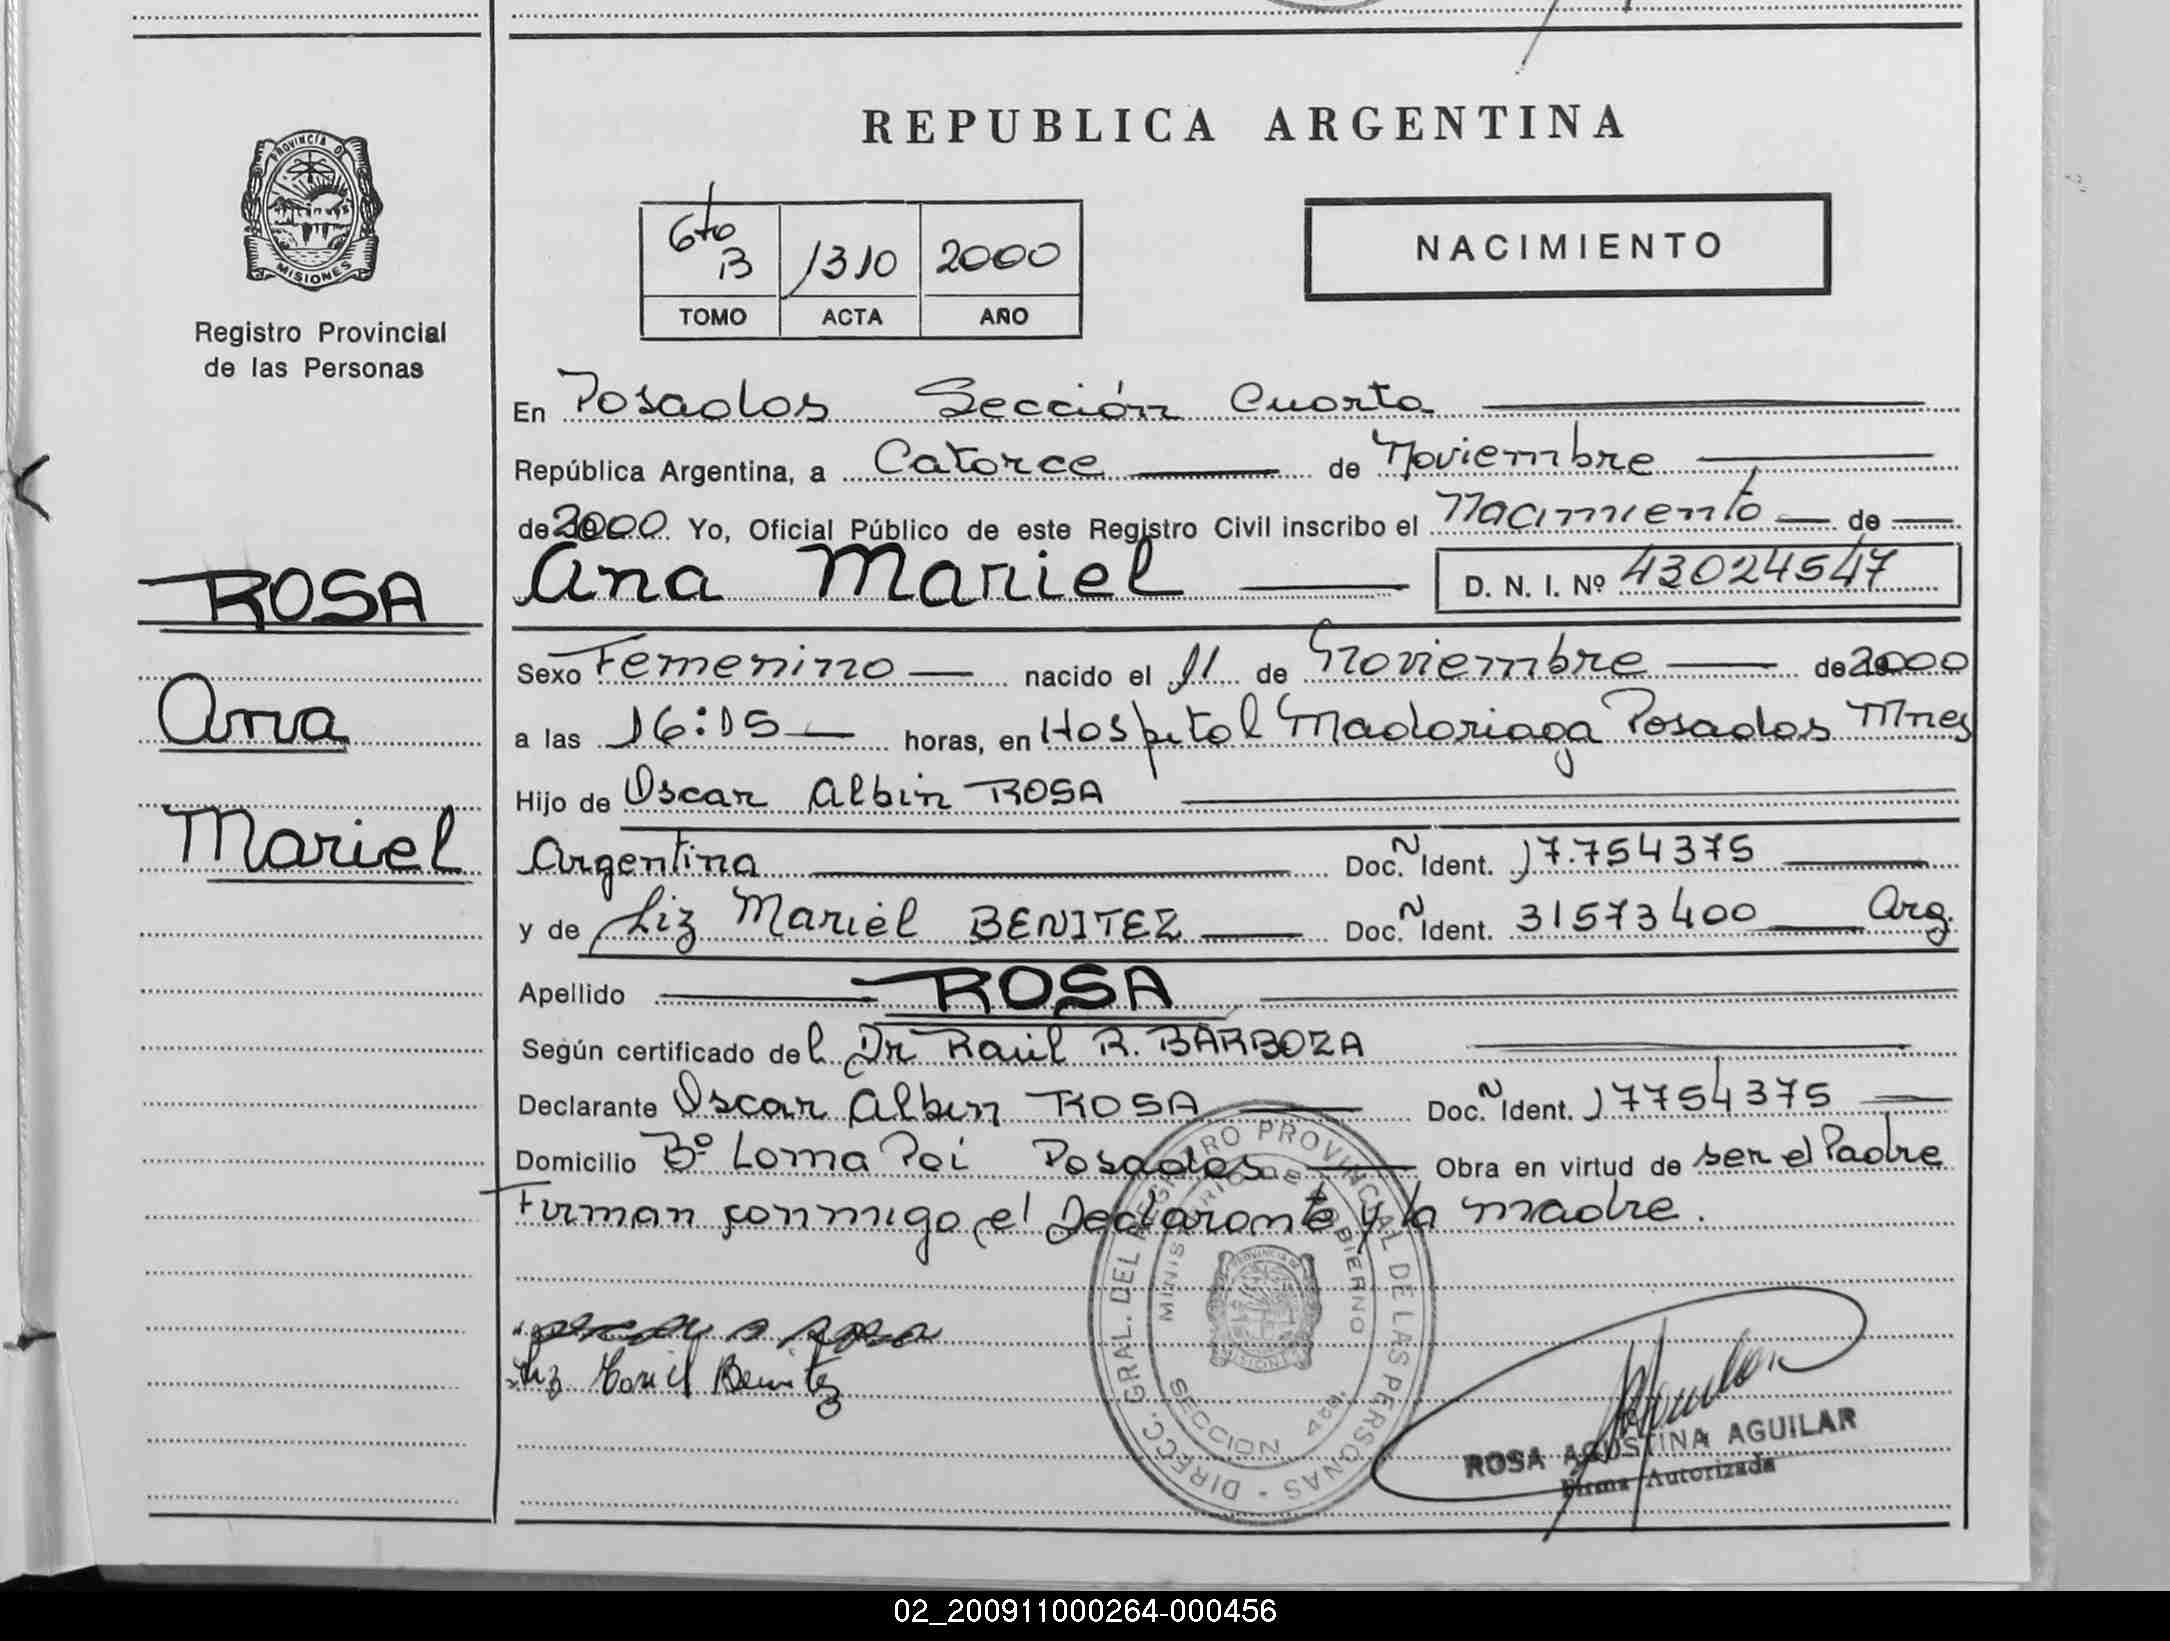 PROVINCIA D
MISIONES
Registro Provincial
de las Personas
ROSA
Ana
Mariel
REPUBLICA ARGENTINA
6to B 1310 2000
TOMO ACTA AÑO
NACIMIENTO
En Posadas Sección Cuarta
República Argentina, a Catorce de Noviembre
de 2000 Yo, Oficial Público de este Registro Civil inscribo el Nacimiento de
Ana Mariel D. N. I. Nº 43024547
Sexo Femenino nacido el 11 de Noviembre de 2000
a las 16:15 horas, en Hospital Madariaga Posadas Mnes
Hijo de Oscar Albin ROSA
Argentina Doc. N Ident. 17.754375
y de Liz Mariel BENITEZ Doc. N Ident. 31573400 Arg.
Apellido ROSA
Según certificado del Dr Raúl R. BARBOZA
Declarante Oscar Albin ROSA Doc. N Ident. 17754375
Domicilio Bº Loma Poi Posadas Obra en virtud de ser el Padre
Firman conmigo el Declarante y la madre.
Liz Mariel Benitez
DIRECC. GRAL. DEL REGISTRO PROVINCIAL DE LAS PERSONAS -
MINISTERIO DE GOBIERNO
PROVINCIA
MISIONES
SECCION 4ta.
ROSA AGUSTINA AGUILAR
Firma Autorizada
02_200911000264-000456